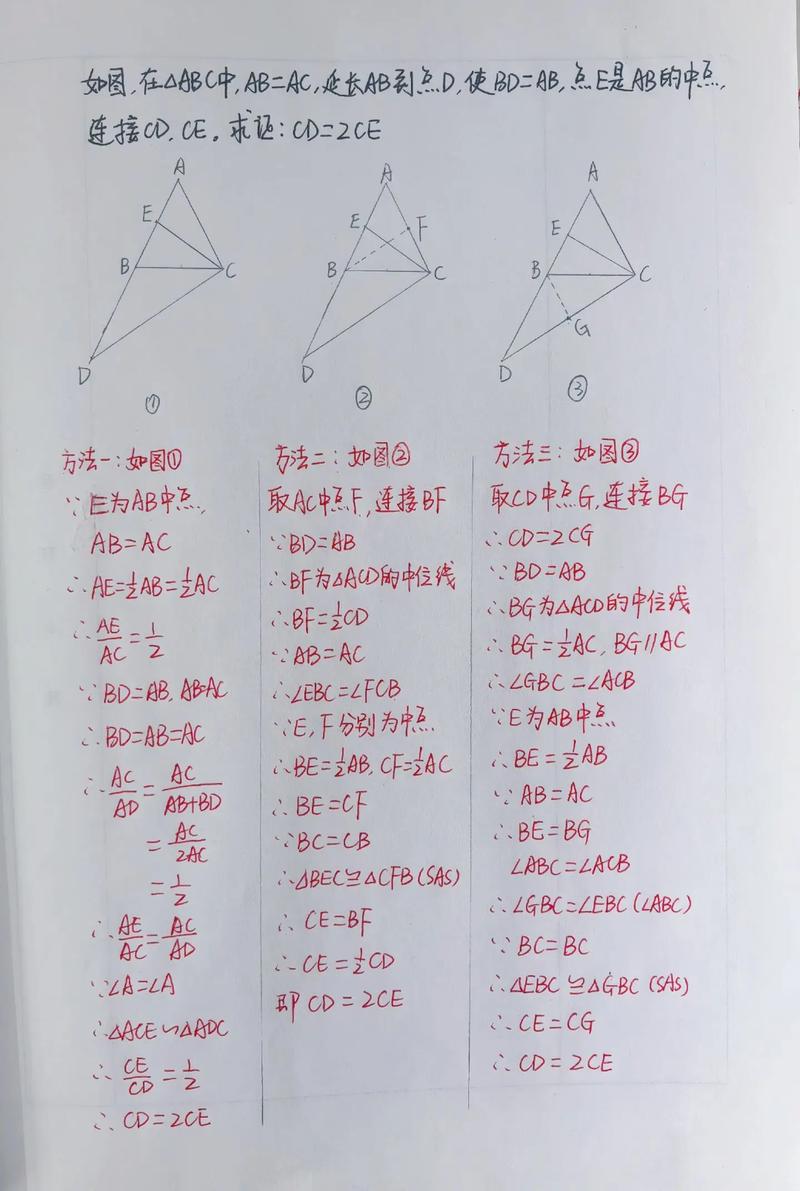 如图,在△ABC中,AB=AC,延长AB到点D,使BD=AB,点E是AB的中点,
连接CD,CE。求证:CD=2CE
A
E
B
C
D
①
A
E
F
B
C
D
②
A
E
B
C
G
D
③
方法一:如图①
∵E为AB中点,
AB=AC
∴AE=½AB=½AC
∴AE/AC=1/2
∵BD=AB,AB=AC
∴BD=AB=AC
∴AC/AD=AC/(AB+BD)
=AC/2AC
=1/2
∴AE/AC=AC/AD
∵∠A=∠A
∴△ACE∽△ADC
∴CE/CD=1/2
∴CD=2CE
方法二:如图②
取AC中点F,连接BF
∵BD=AB
∴BF为△ACD的中位线
∴BF=½CD
∵AB=AC
∴∠EBC=∠FCB
∵E,F分别为中点
∴BE=½AB,CF=½AC
∴BE=CF
∵BC=CB
∴△BEC≌△CFB(SAS)
∴CE=BF
∴CE=½CD
即CD=2CE
方法三:如图③
取CD中点G,连接BG
∴CD=2CG
∵BD=AB
∴BG为△ACD的中位线
∴BG=½AC,BG∥AC
∴∠GBC=∠ACB
∵E为AB中点
∴BE=½AB
∵AB=AC
∴BE=BG
∠ABC=∠ACB
∴∠GBC=∠EBC(∠ABC)
∵BC=BC
∴△EBC≌△GBC(SAS)
∴CE=CG
∴CD=2CE